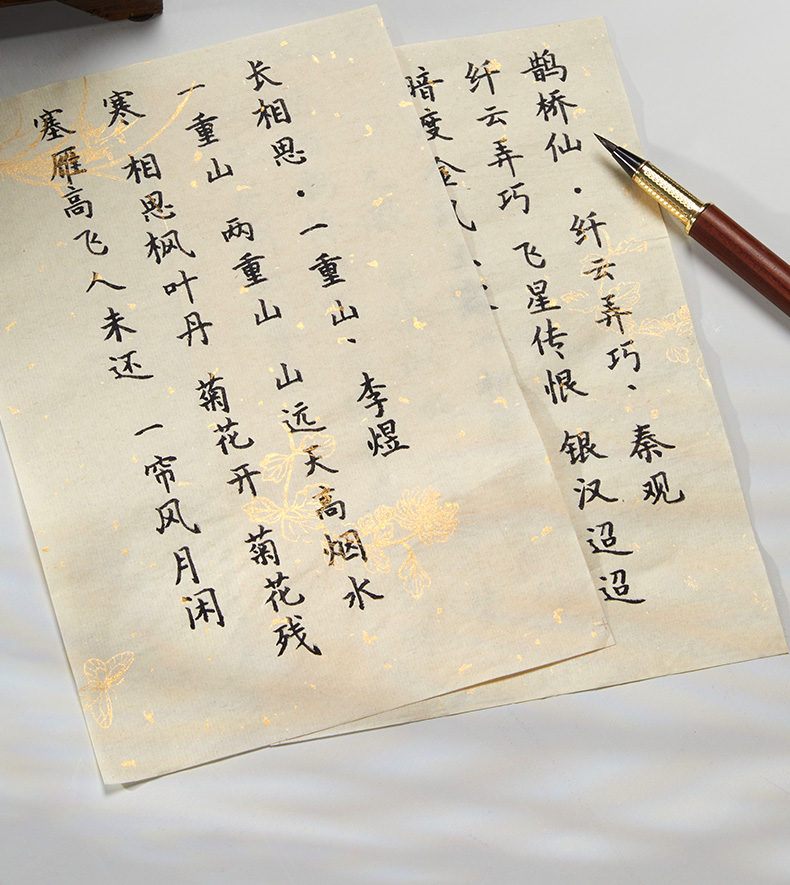 长相思·一重山·李煜
一重山 两重山 山远天高烟水
寒 相思枫叶丹 菊花开 菊花残
塞雁高飞人未还 一帘风月闲
鹊桥仙·纤云弄巧·秦观
纤云弄巧 飞星传恨 银汉迢迢
暗度 金风